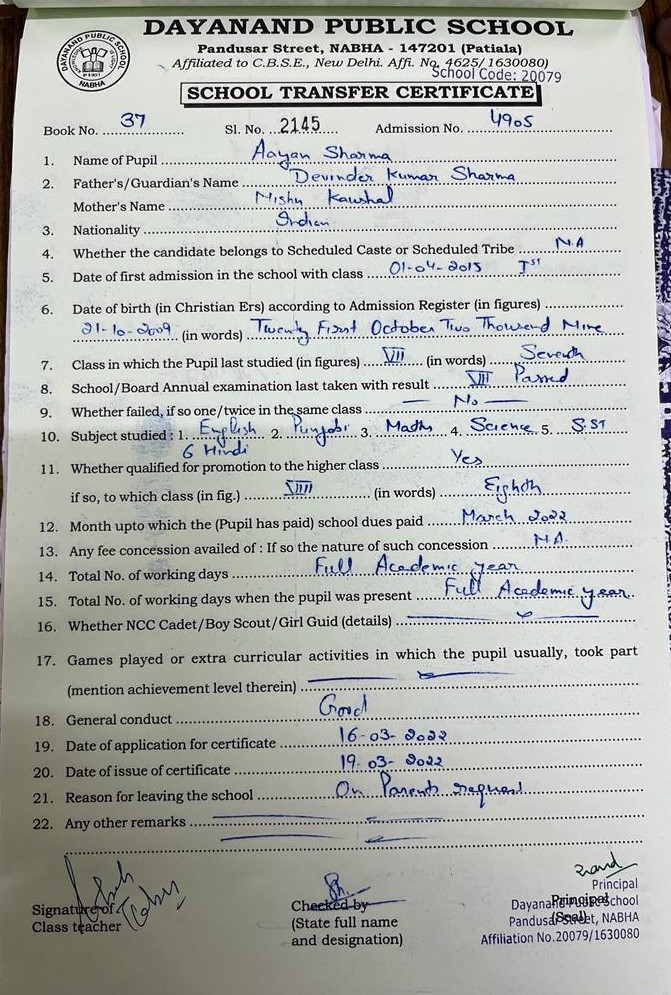 DAYANAND PUBLIC SCHOOL
Pandusar Street, NABHA - 147201 (Patiala)
Affiliated to C.B.S.E., New Delhi. Affi. No. 4625/1630080)
School Code: 20079
DAYANAND PUBLIC SCHOOL
NABHA
SCHOOL TRANSFER CERTIFICATE
Book No. 37 Sl. No. 2145 Admission No. 4905
1. Name of Pupil Aayan Sharma
2. Father's/Guardian's Name Devinder Kumar Sharma
Mother's Name Nishu Kaushal
3. Nationality Indian
4. Whether the candidate belongs to Scheduled Caste or Scheduled Tribe N.A
5. Date of first admission in the school with class 01-04-2015 Ist
6. Date of birth (in Christian Ers) according to Admission Register (in figures)
21-10-2009 (in words) Twenty First October Two Thousand Nine
7. Class in which the Pupil last studied (in figures) VII (in words) Seventh
8. School/Board Annual examination last taken with result VII Passed
9. Whether failed, if so one/twice in the same class — No —
10. Subject studied : 1. English 2. Punjabi 3. Maths 4. Science 5. S.ST
6 Hindi
11. Whether qualified for promotion to the higher class Yes
if so, to which class (in fig.) VIII (in words) Eighth
12. Month upto which the (Pupil has paid) school dues paid March 2022
13. Any fee concession availed of : If so the nature of such concession N.A.
14. Total No. of working days Full Academic year
15. Total No. of working days when the pupil was present Full Academic year
16. Whether NCC Cadet/Boy Scout/Girl Guid (details)
17. Games played or extra curricular activities in which the pupil usually, took part
(mention achievement level therein)
18. General conduct Good
19. Date of application for certificate 16-03-2022
20. Date of issue of certificate 19-03-2022
21. Reason for leaving the school On Parents request
22. Any other remarks
Signature of
Class teacher
Checked by
(State full name
and designation)
Principal
(Seal)
Principal
Dayanand Public School
Pandusar Street, NABHA
Affiliation No.20079/1630080